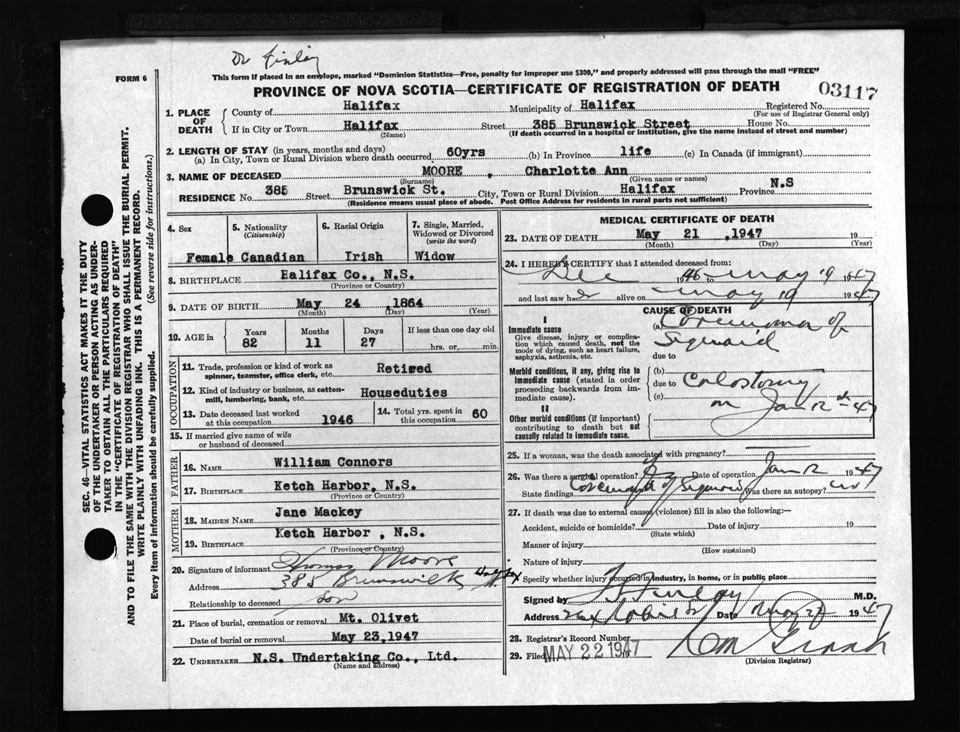 Dr Finlay
FORM 6
This form if placed in an envelope, marked "Dominion Statistics—Free, penalty for improper use $300," and properly addressed will pass through the mail "FREE"
PROVINCE OF NOVA SCOTIA—CERTIFICATE OF REGISTRATION OF DEATH
03117
1. PLACE OF DEATH
County of Halifax Municipality of Halifax Registered No.
(For use of Registrar General only)
If in City or Town Halifax Street 385 Brunswick Street House No.
(Name) (If death occurred in a hospital or institution, give the name instead of street and number)
2. LENGTH OF STAY (in years, months and days)
(a) In City, Town or Rural Division where death occurred 60yrs (b) In Province life (c) In Canada (if immigrant)
3. NAME OF DECEASED MOORE , Charlotte Ann
(Surname) (Given name or names)
RESIDENCE No. 385 Street Brunswick St. City, Town or Rural Division Halifax Province N.S
(Residence means usual place of abode. Post Office Address for residents in rural parts not sufficient)
4. Sex Female
5. Nationality (Citizenship) Canadian
6. Racial Origin Irish
7. Single, Married, Widowed or Divorced (write the word) Widow
8. BIRTHPLACE Halifax Co., N.S.
(Province or Country)
9. DATE OF BIRTH May 24 ,1864
(Month) (Day) (Year)
10. AGE in Years 82 Months 11 Days 27 If less than one day old hrs. or min.
OCCUPATION
11. Trade, profession or kind of work as spinner, teamster, office clerk, etc. Retired
12. Kind of industry or business, as cotton-mill, lumbering, bank, etc. Houseduties
13. Date deceased last worked at this occupation 1946
14. Total yrs. spent in this occupation 60
15. If married give name of wife or husband of deceased
FATHER
16. NAME William Connors
17. BIRTHPLACE Ketch Harbor, N.S.
MOTHER
18. MAIDEN NAME Jane Mackey
19. BIRTHPLACE Ketch Harbor , N.S.
(Province or Country)
20. Signature of informant Thomas Moore
Address 385 Brunswick St Halifax
Relationship to deceased son
21. Place of burial, cremation or removal Mt. Olivet
Date of burial or removal May 23,1947
22. UNDERTAKER N.S. Undertaking Co., Ltd.
(Name and address)
MEDICAL CERTIFICATE OF DEATH
23. DATE OF DEATH May 21 ,1947
(Month) (Day) (Year)
24. I HEREBY CERTIFY that I attended deceased from:
Dec 1946 to May 19 1947
and last saw her alive on May 19 1947
CAUSE OF DEATH
I
Immediate cause
Give disease, injury or complication which caused death, not the mode of dying, such as heart failure, asphyxia, asthenia, etc.
(a) Carcinoma of
Sigmoid
due to
Morbid conditions, if any, giving rise to immediate cause (stated in order proceeding backwards from immediate cause).
(b)
due to Colostomy
(c) on Jan 12th 47
II
Other morbid conditions (if important) contributing to death but not causally related to immediate cause.
25. If a woman, was the death associated with pregnancy?
26. Was there a surgical operation? Date of operation Jan 12 1947
State findings Carcinoma of Sigmoid Was there an autopsy? no
27. If death was due to external causes (violence) fill in also the following:—
Accident, suicide or homicide? Date of injury 19
(State which)
Manner of injury
(How sustained)
Nature of injury
Specify whether injury occurred in industry, in home, or in public place
Signed by Finlay M.D.
Address Date May 22 1947
28. Registrar's Record Number
29. Filed MAY 22 1947
(Division Registrar)
SEC. 46—VITAL STATISTICS ACT MAKES IT THE DUTY
OF THE UNDERTAKER OR PERSON ACTING AS UNDER-
TAKER TO OBTAIN ALL THE PARTICULARS REQUIRED
IN THE "CERTIFICATE OF REGISTRATION OF DEATH"
AND TO FILE THE SAME WITH THE DIVISION REGISTRAR WHO SHALL ISSUE THE BURIAL PERMIT.
WRITE PLAINLY WITH UNFADING INK. THIS IS A PERMANENT RECORD.
Every item of information should be carefully supplied. (See reverse side for instructions.)